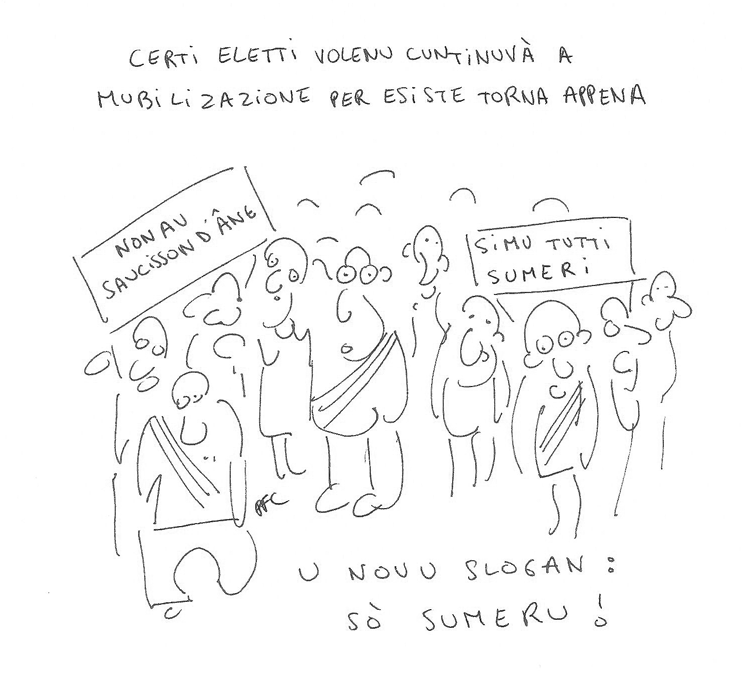 CERTI ELETTI VOLENU CUNTINUVÀ A
MUBILIZAZIONE PER ESISTE TORNA APPENA
NON AU
SAUCISSON D'ÂNE
SIMU TUTTI
SUMERI
AFC
U NOVU SLOGAN :
SÒ SUMERU !